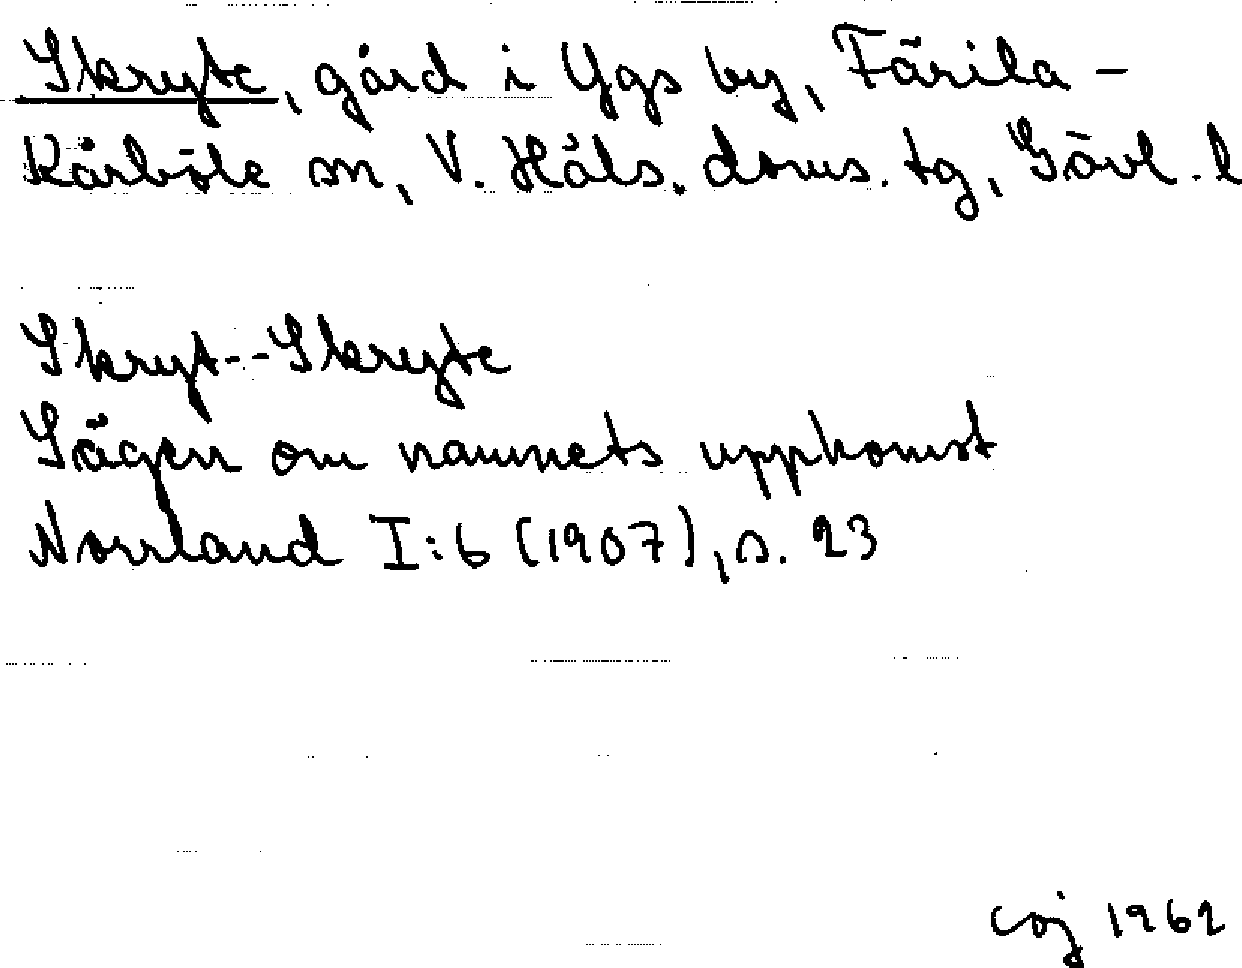 Skryte, gård i Ygs by, Färila-
Kårböle sn, V. Häls. doms. tg, Gävl. l
Skryt--Skryte
Sägen om namnets uppkomst
Norrland I:6 (1907), s. 23
coj 1962